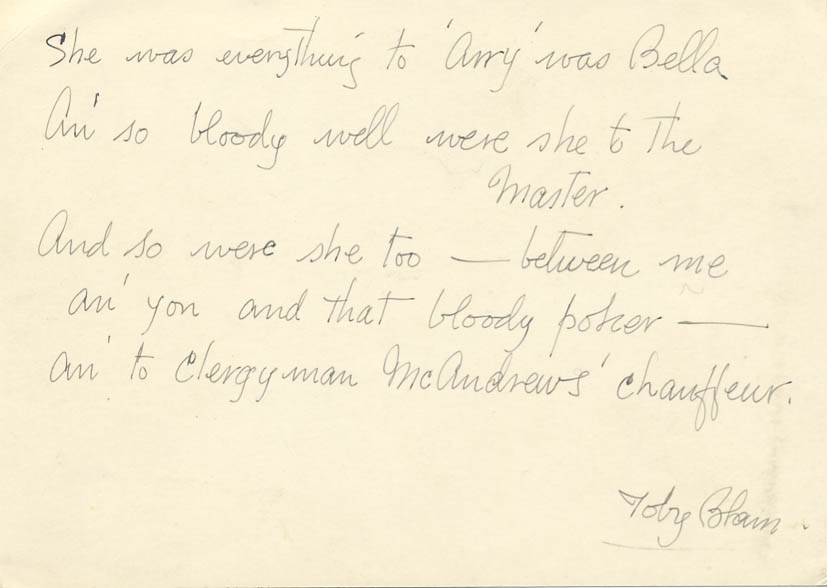 She was everything to 'Arry' was Bella
An' so bloody well were she to the
Master.
And so were she too — between me
an' you and that bloody poker —
an' to Clergyman McAndrews' chauffeur.
Toby Blam.